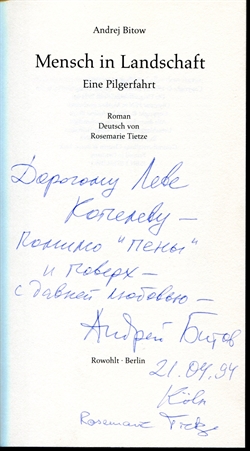 Andrej Bitow
Mensch in Landschaft
Eine Pilgerfahrt
Roman
Deutsch von
Rosemarie Tietze
Дорогому Леве
Копелеву –
помимо "пены"
и поверх –
с давней любовью –
Андрей Битов
Rowohlt · Berlin
21.04.94
Köln
Rosemarie Tietze